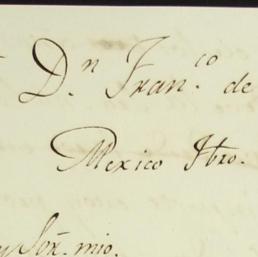 D.ⁿ Fran.ᶜᵒ de
Mexico Hbro.
y Señ. mio.